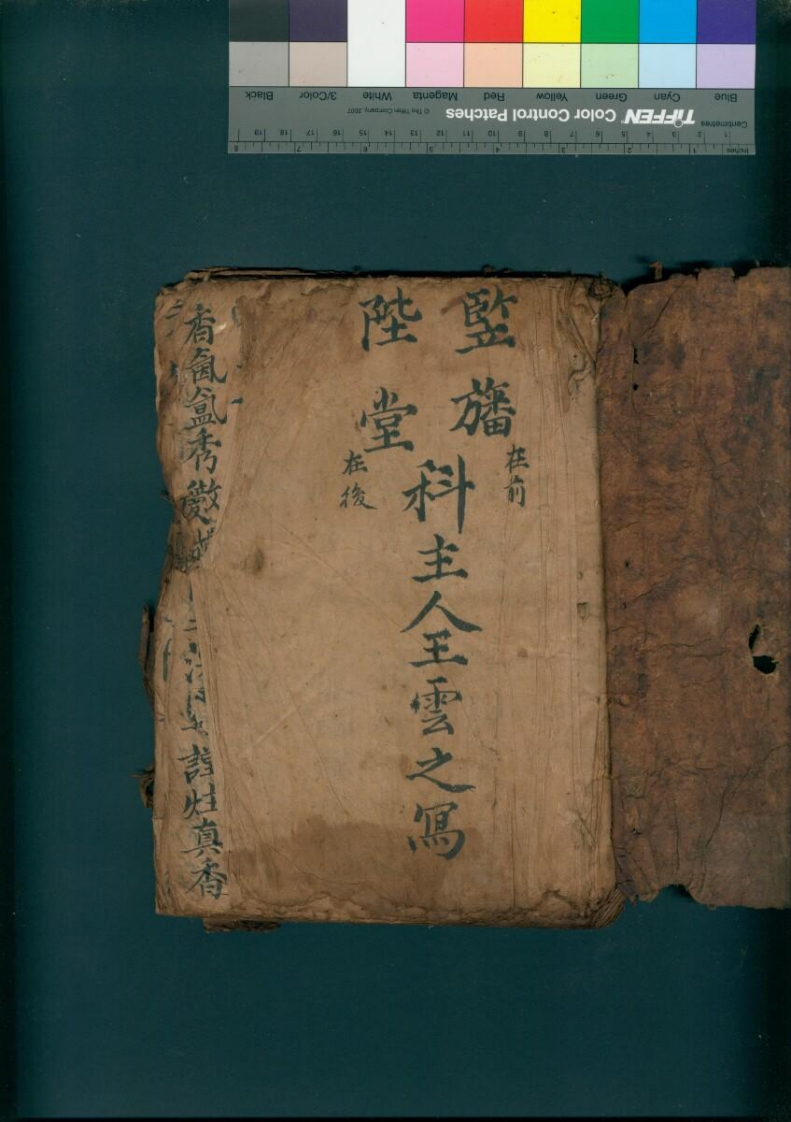 Blue Cyan Green Yellow Red Magenta White 3/Color Black
Centimetres TIFFEN Color Control Patches © The Tiffen Company, 2007
1 2 3 4 5 6 7 8 9 10 11 12 13 14 15 16 17 18 19
Inches 1 2 3 4 5 6 7 8
竖旛
在前
陞堂
在後
科主人王雲之寫
香氤氲秀
真香